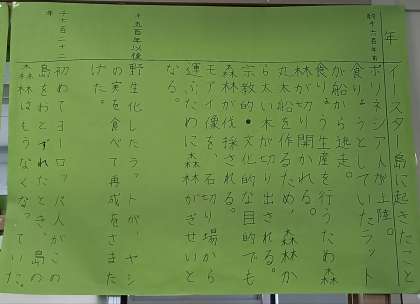 年
イースター島に起きたこと
約千六百年前
ポリネシア人が上陸。
食りょうとしていたラット
が船から逃走。
食りょう生産を行うため森
林が切り開かれる。
丸太船を作るため、森林か
ら太い木が切り出される。
宗教的・文化的な目的でも
森林が伐採される。
モアイ像を、石切り場から
運ぶために森林がぎせいと
なる。
千五百年以後
野生化したラットが、ヤシ
の実を食べて再成をさまた
げた。
千七百二十二
年
初めてヨーロッパ人がこの
島をおとずれたとき、島の
森林はもうなくなっていた。